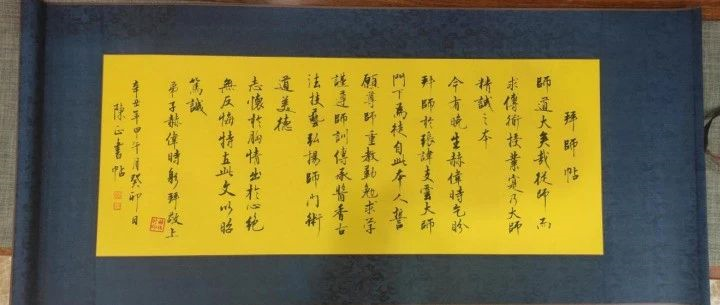 拜師帖
師道大矣哉從師而
求傳術授業寔乃大師
精誠之本
今有晚生赫偉時乞盼
拜師於張諱支雲大師
門下為徒自此本人誓
願尊師重教勤勉求學
謹遵師訓傳承醬香古
法技藝弘揚師門術
道美德
志懷於胸情出於心絕
無反悔特立此文以昭
篤誠
弟子赫偉時躬拜敬上
辛丑年甲午月癸卯日
陳正書帖